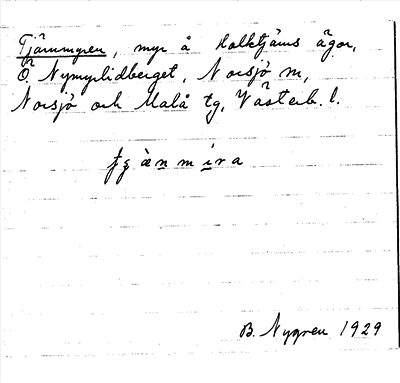 Tjärnmyren, myr å Holktjärns ägor,
Ö Nymyrlidberget, Norsjö sn,
Norsjö och Malå tg, Västerb. l.
B. Nygren 1929